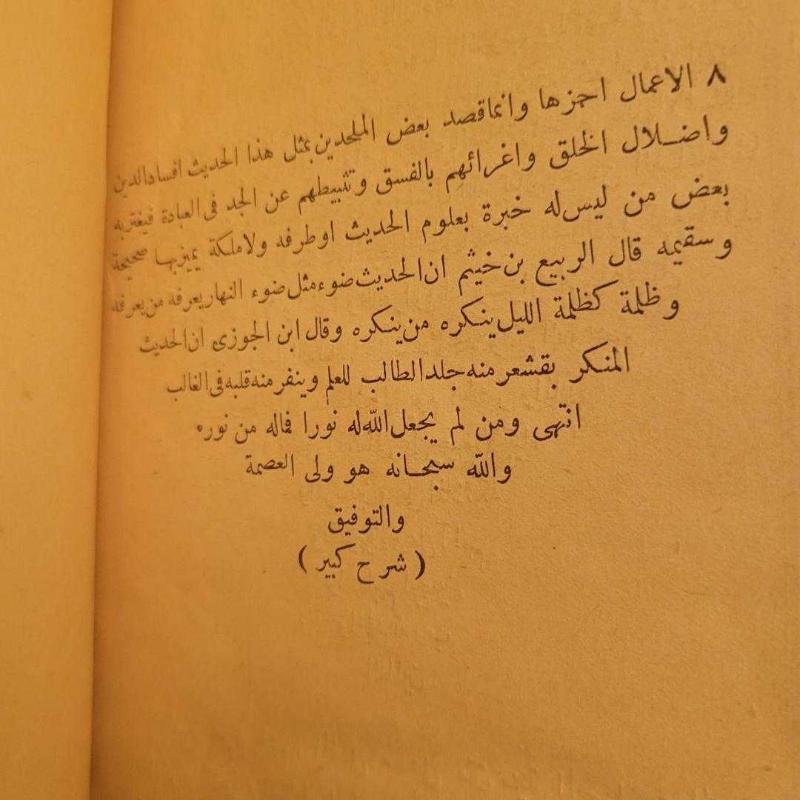 ٨ الاعمال احمزها وانماقصد بعض الملحدين بمثل هذا الحديث افسادالدين
واضلال الخلق واغرائهم بالفسق وتثبيطهم عن الجد فى العبادة فيغتربه
بعض من ليس له خبرة بعلوم الحديث اوطرفه ولاملكة يميزبها صحيحة
وسقيمه قال الربيع بن خيثم ان الحديث ضوء مثل ضوء النهار يعرفه من يعرفه
وظلمة كظلمة الليل ينكره من ينكره وقال ابن الجوزى ان الحديث
المنكر يقشعر منه جلد الطالب للعلم وينفر منه قلبه فى الغالب
انتهى ومن لم يجعل الله له نورا فماله من نور٠
والله سبحانه هو ولى العصمة
والتوفيق
( شرح كبير )